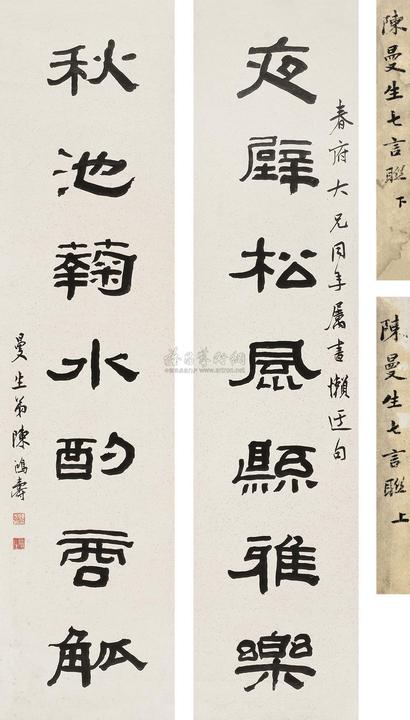 陳曼生七言聯 上
陳曼生七言聯 下
春府大兄同年屬書懶迂句
夜壁松風縣雅樂
秋池鞠水酌雲觚
曼生弟陳鴻壽